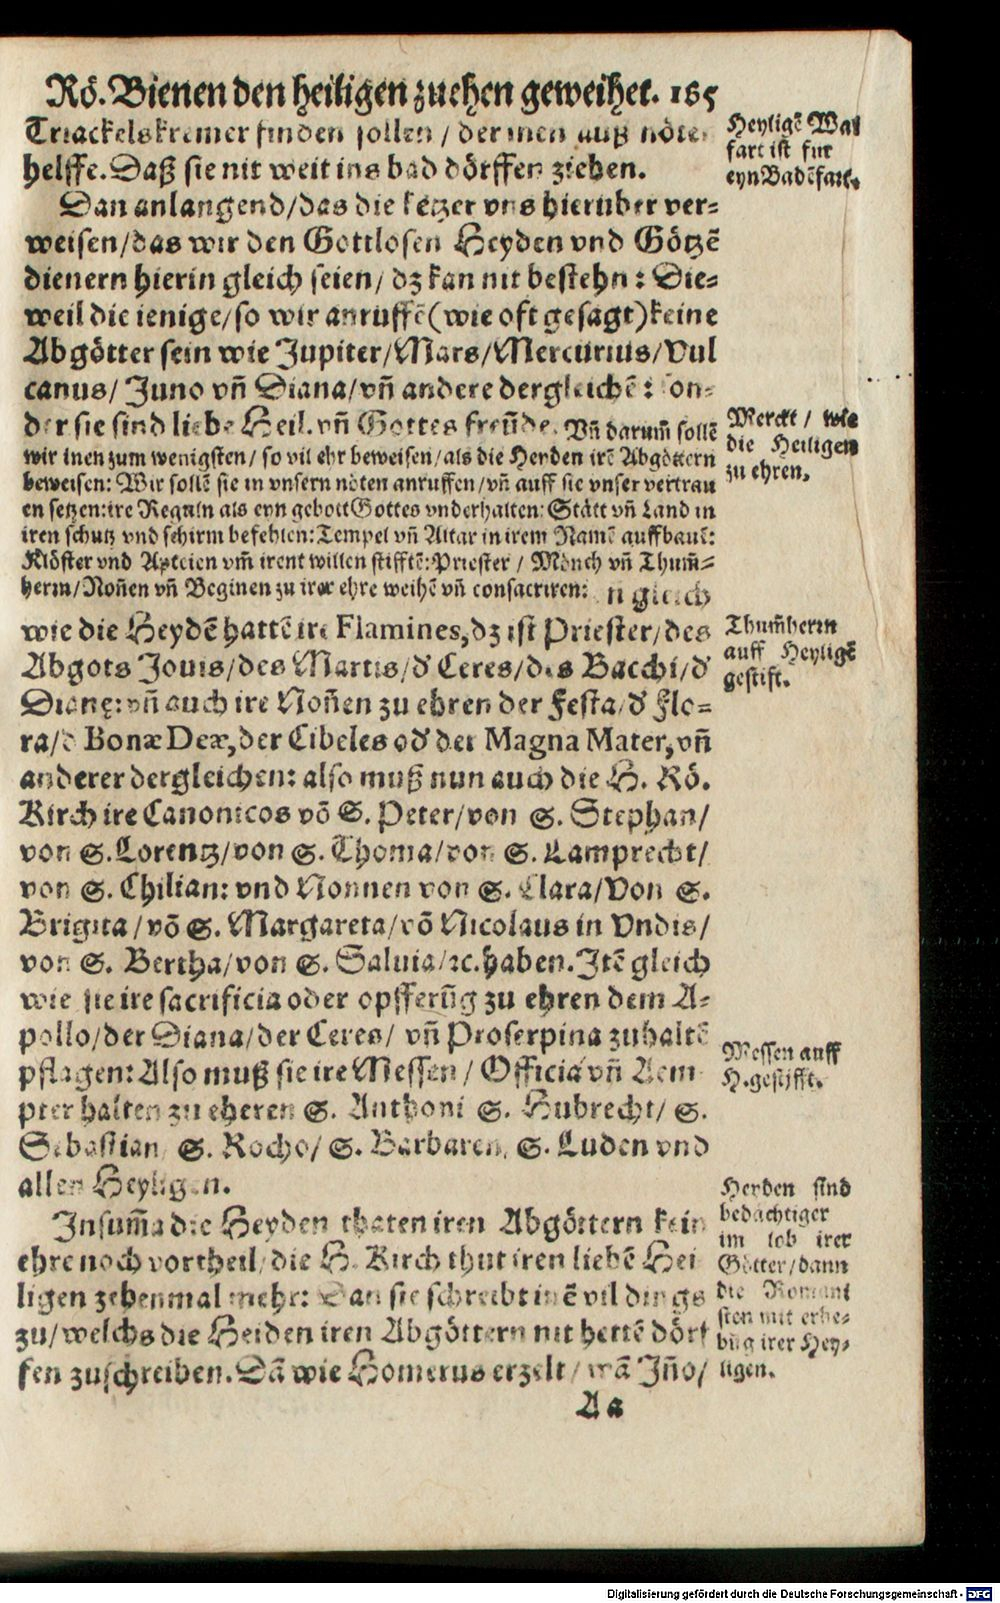 Rö. Bienen den heiligen zuehen geweihet. 165
Triackelskremer finden sollen / der inen auß nöten
helffe. Daß sie nit weit ins bad dörffen ziehen.
Heyligē Wal
fart ist fur
eyn Badēfart.
Dan anlangend / das die ketzer vns hieruber ver-
weisen / das wir den Gottlosen Heyden vnd Götzē
dienern hierin gleich seien / dz kan nit bestehn : Die-
weil die ienige / so wir anruffē (wie oft gesagt) keine
Abgötter sein wie Jupiter / Mars / Mercurius / Vul
canus / Juno vñ Diana / vñ andere dergleichē : son-
der sie sind liebe Heil. vñ Gottes freūde. Vñ darum̄ sollē
wir inen zum wenigsten / so vil ehr beweisen / als die Heyden irē Abgöttern
beweisen: Wir sollē sie in vnsern nöten anruffen / vñ auff sie vnser vertrau
en setzen: ire Reguln als eyn gebott Gottes vnderhalten: Stätt vñ Land in
iren schutz vnd schirm befehlen: Tempel vñ Altar in irem Namē auffbauē:
Klöster vnd Apteien vm̄ irent willen stifftē: Priester / Mönch vñ Thum̄-
herrn / Noñen vñ Beginen zu irer ehre weihē vñ consacriren: n gleich
Merckt / wie
die Heiligen
zu ehren.
wie die Heydē hattē ire Flamines, dz ist Priester / des
Abgots Jouis / des Martis / d' Ceres / des Bacchi / d'
Dianę: vñ auch ire Noñen zu ehren der Festa / d' Flo-
ra / d' Bonæ Deæ, der Cibeles od' der Magna Mater, vñ
anderer dergleichen: also muß nun auch die H. Rö.
Kirch ire Canonicos vō S. Peter / von S. Stephan /
von S. Lorentz / von S. Thoma / von S. Lamprecht /
von S. Chilian: vnd Nonnen von S. Clara / Von S.
Brigita / vō S. Margareta / vō Nicolaus in Vndis /
von S. Bertha / von S. Saluia / ꝛc. haben. Itē gleich
wie sie ire sacrificia oder opfferūg zu ehren dem A-
pollo / der Diana / der Ceres / vñ Proserpina zuhaltē
pflagen: Also muß sie ire Messen / Officia vñ Aem
pter halten zu eheren S. Anthoni S. Hubrecht / S.
Sebastian, S. Rocho / S. Barbaren, S. Luden vnd
allen Heyligen.
Thum̄herrn
auff Heyligē
gestift.
Messen auff
H. gestifft.
Insum̄a die Heyden thaten iren Abgöttern kein
ehre noch vortheil / die H. Kirch thut iren liebē Hei
ligen zehenmal mehr: Dan sie schreibt inē vil dings
zu / welchs die Heiden iren Abgöttern nit hettē dörf
fen zuschreiben. Dā wie Homerus erzelt / wā Jño /
Heyden sind
bedächtiger
im lob irer
Götter / dann
die Romani
sten mit erhe-
būg irer Hey-
ligen.
Aa
Digitalisierung gefördert durch die Deutsche Forschungsgemeinschaft - DFG